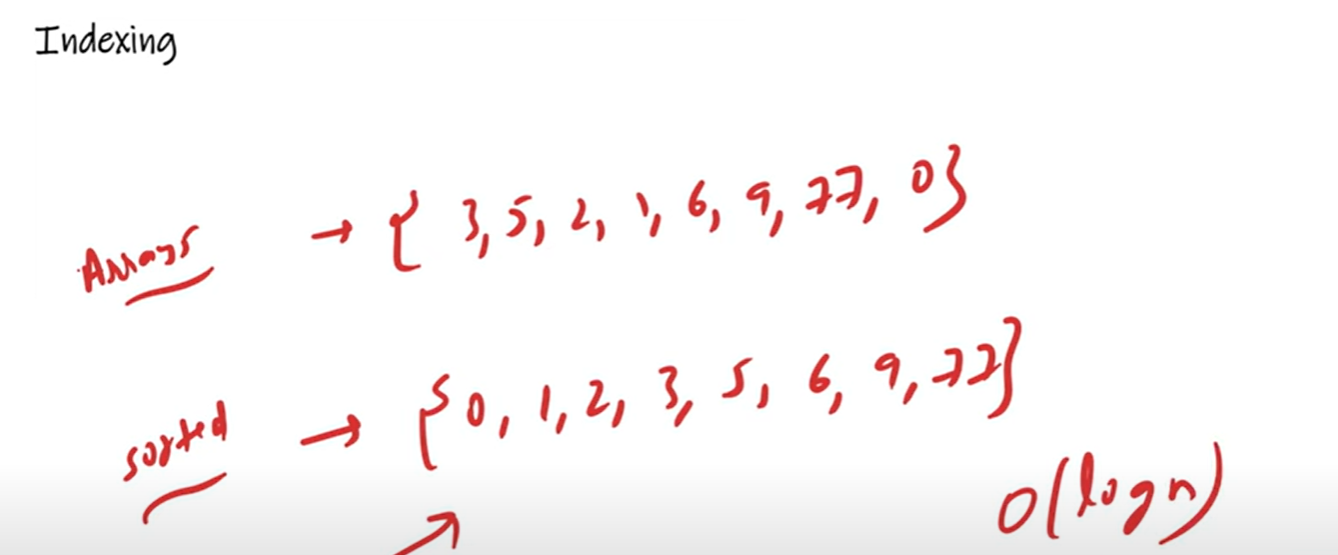 Indexing
Arrays → { 3, 5, 2, 1, 6, 9, 77, 0}
sorted → { 0, 1, 2, 3, 5, 6, 9, 77}
O(logn)